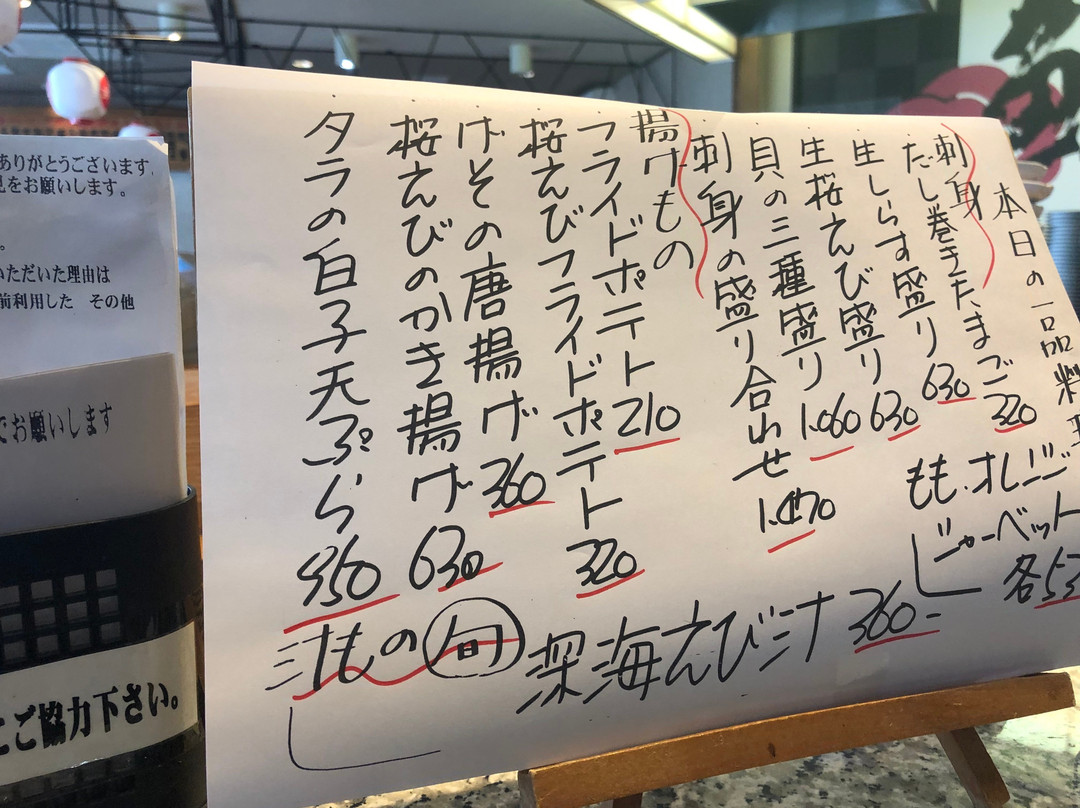 本日の一品料理
刺身
だし巻きたまご 320
生しらす盛り 630
生桜えび盛り 630
貝の三種盛り 1.060
刺身の盛り合わせ
揚げもの
フライドポテト 210
桜えびフライドポテト 320
げその唐揚げ 360
桜えびのかき揚げ 630
タラの白子天ぷら
もも、オレンジ
シャーベット
各53
汁もの 旬 深海えび汁 360-
ありがとうございます。
見をお願いします。
いただいた理由は
前利用した その他
でお願いします
ご協力下さい。